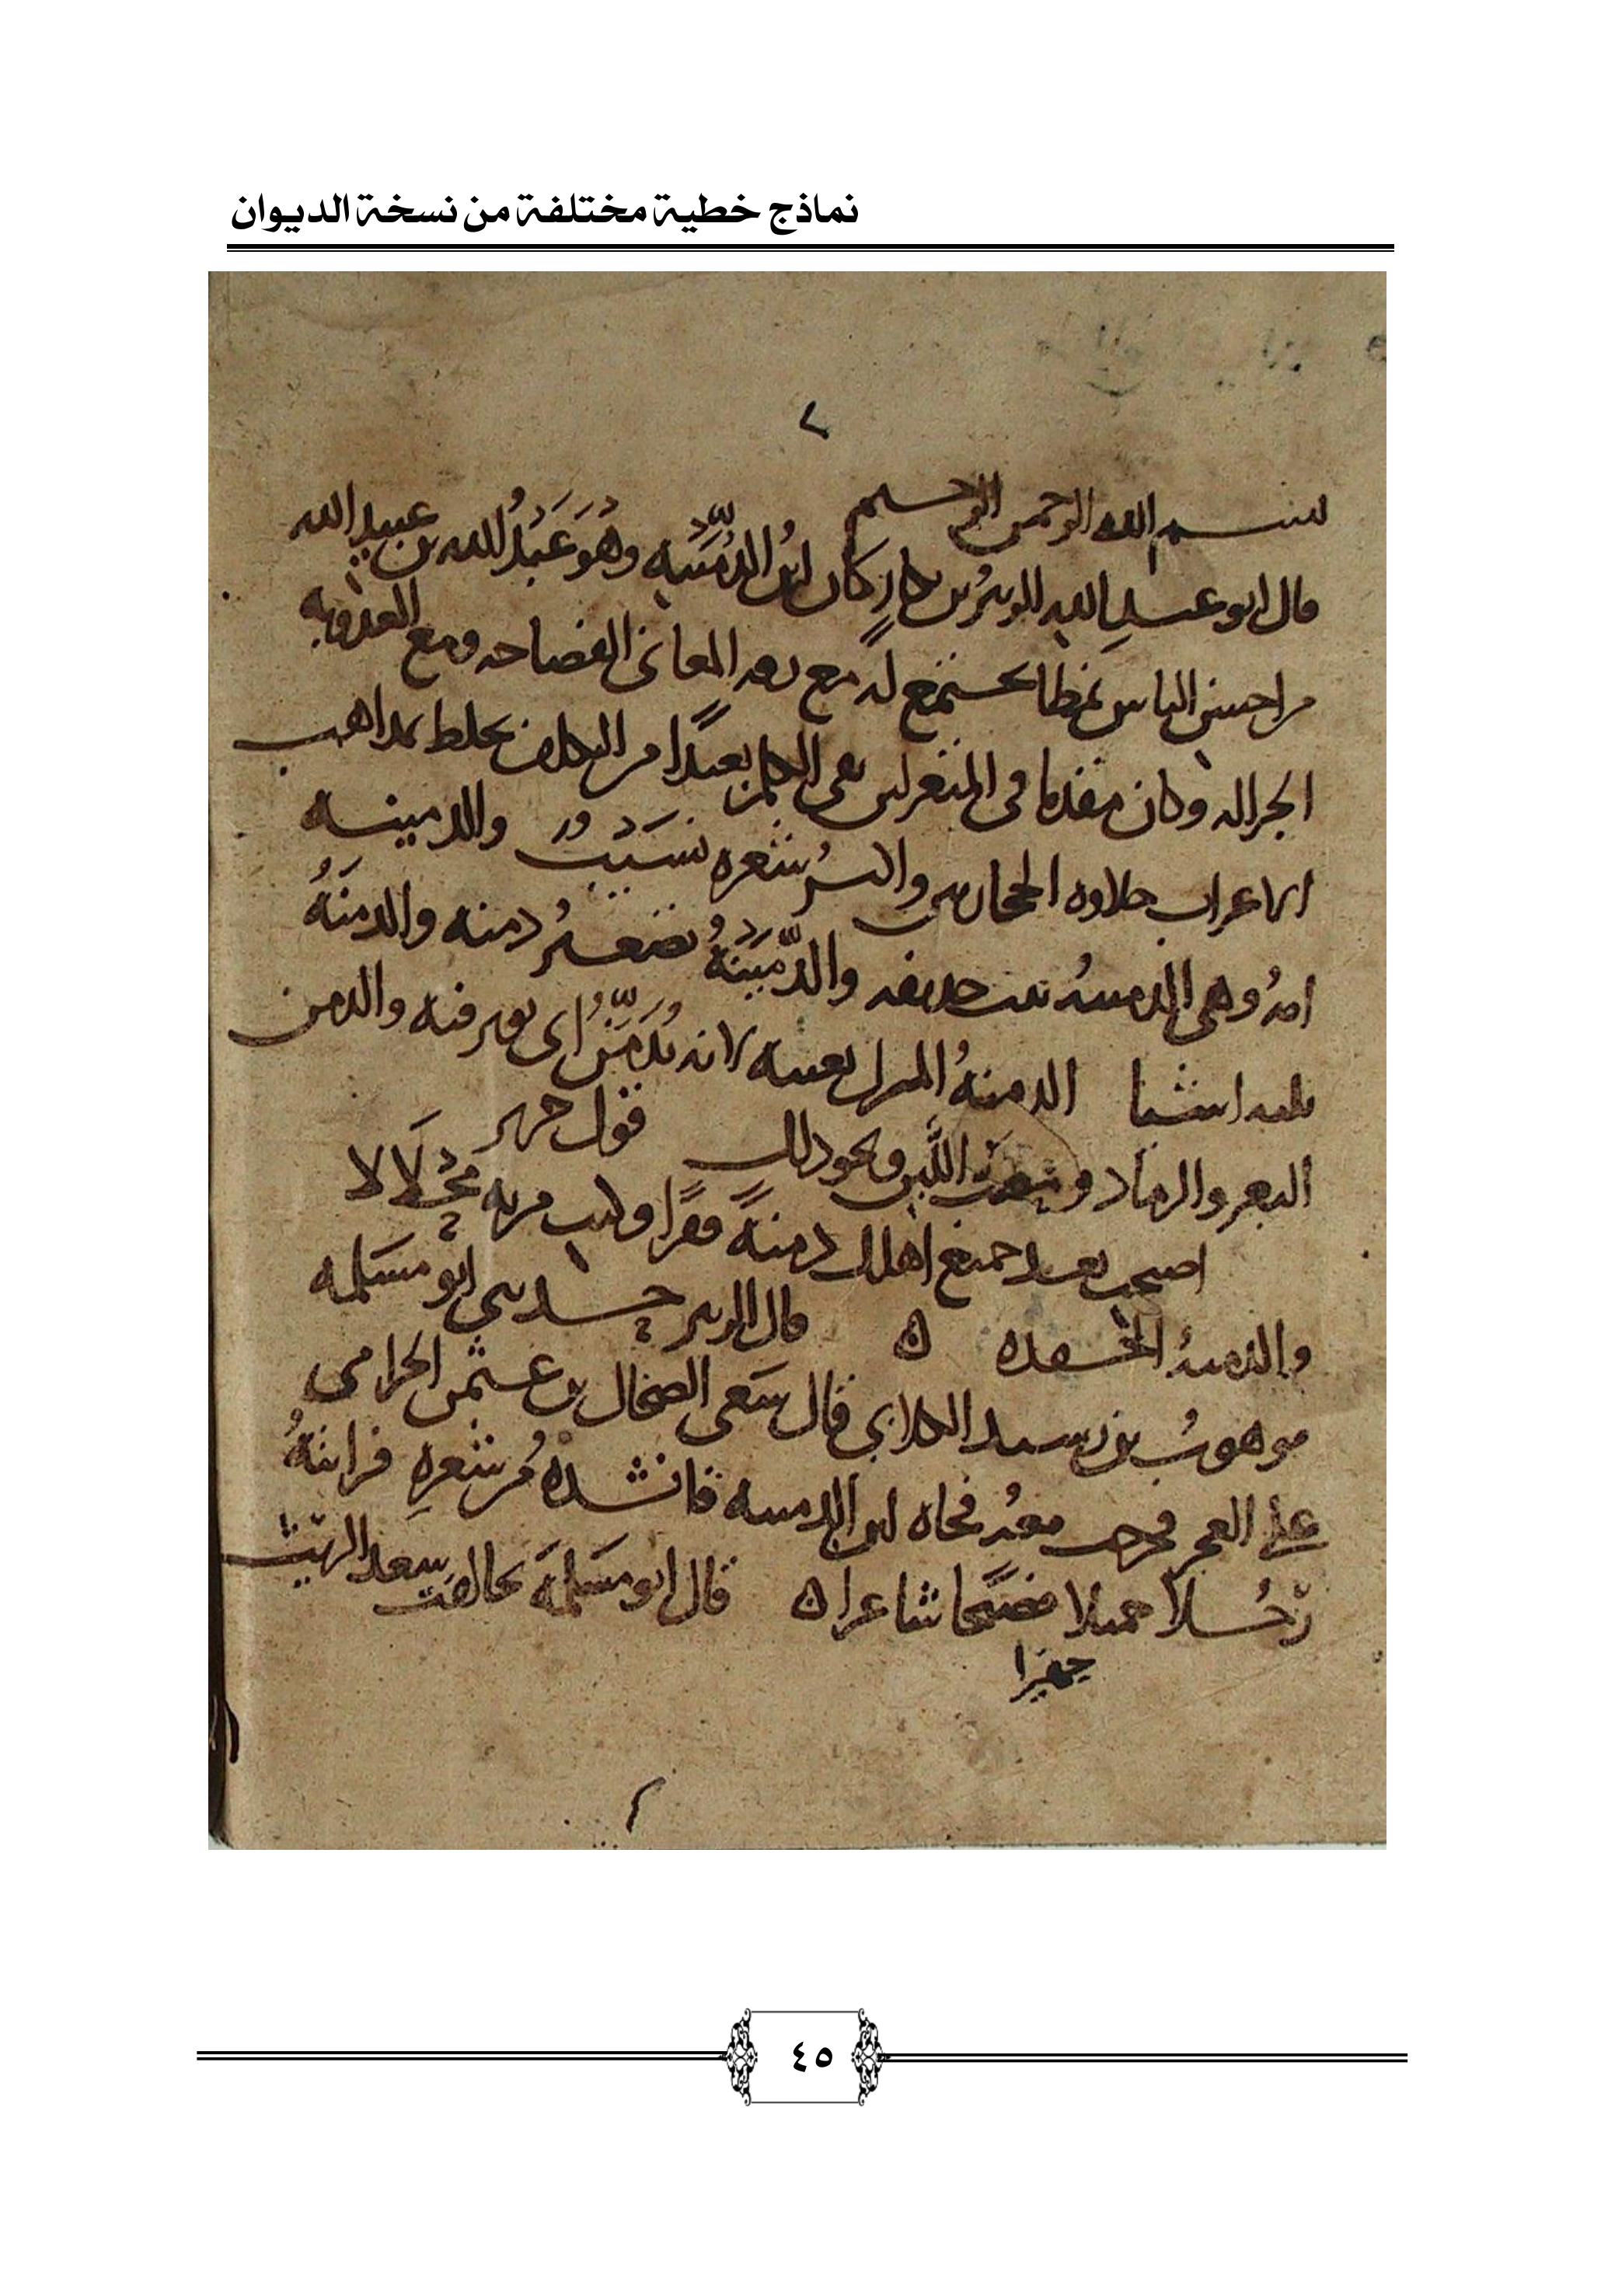 نماذج خطية مختلفة من نسخة الديوان
٢
بسم الله الرحمن الرحيم
قال ابو عبد الله الزبير بن بكار كان ابن الدُّمَيْنه وهُوَ عَبْدُ الله بن عبيد الله
من احسن الناس نمطا يجتمع له مع دقه المعانى الفصاحه ومع العذوبه
الجزاله وكان مقدما فى المتغزلين نقى الكلام بعيدًا من التكلف يخلط بمذاهب
الاعراب حلاوه الحجازيين واكثر شعره نسيب والدمينه
امهُ وهى الدمينهُ بنت حذيفه والدُّمَيْنَهُ تصغيرُ دمنه والدمنَهُ
الدمنهُ المنزل بعينه لانه يُدَمَّنُ اى يوثر فيه والدمن
البعر والرماد و اللَّبن ونحو ذلك قول جرير
اصبحت بعد جميع اهلك دمنهً قفرًا وكنت مربه مِحْلَالا
والدمنهُ الحقده ه قال الزبير حدثنى ابو مسلمه
موهوبُ بن رشيد الكلابي قال سعى الضحاك بن عثمن الحزامى
على فجاه ابن الدمينه فانشدهُ من شعرهِ فرايتهُ
رَجُلا جميلا فصيحا شاعرا ه قال ابو مسلمَه تحالفت
٤٥